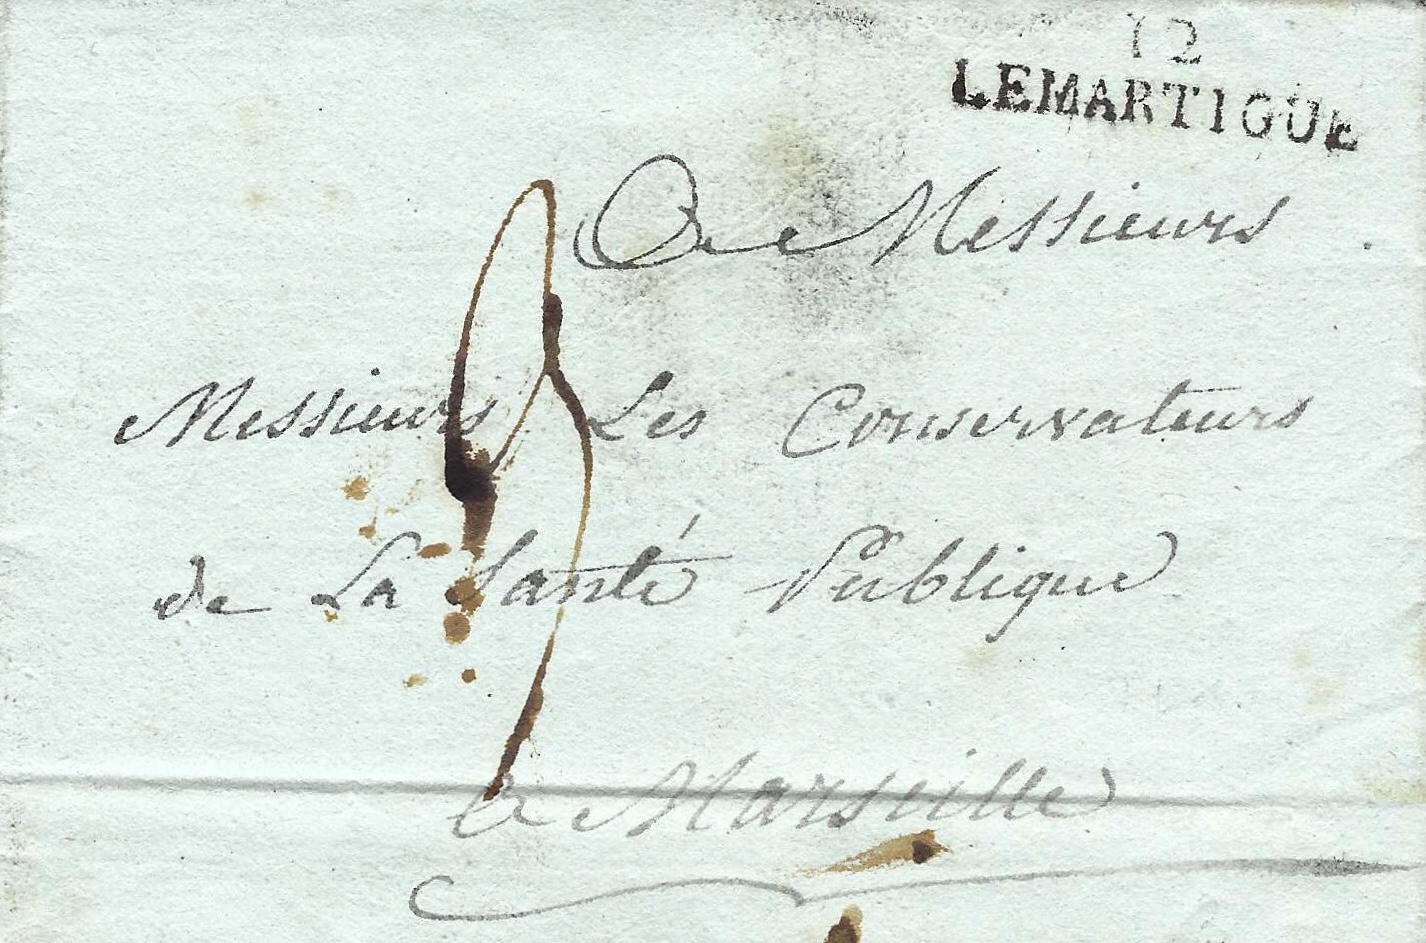 12
LEMARTIGUE
A Messieurs
Messieurs Les Conservateurs
de La Santé Publique
a Marseille